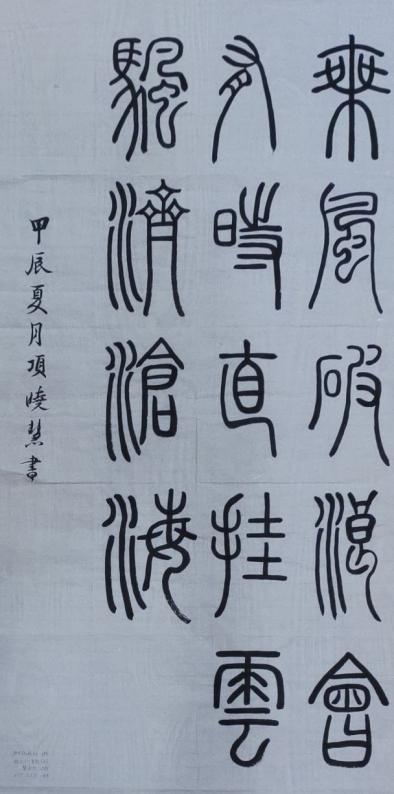 乘風破浪會
有時直挂雲
颿濟滄海
甲辰夏月項曉慧書